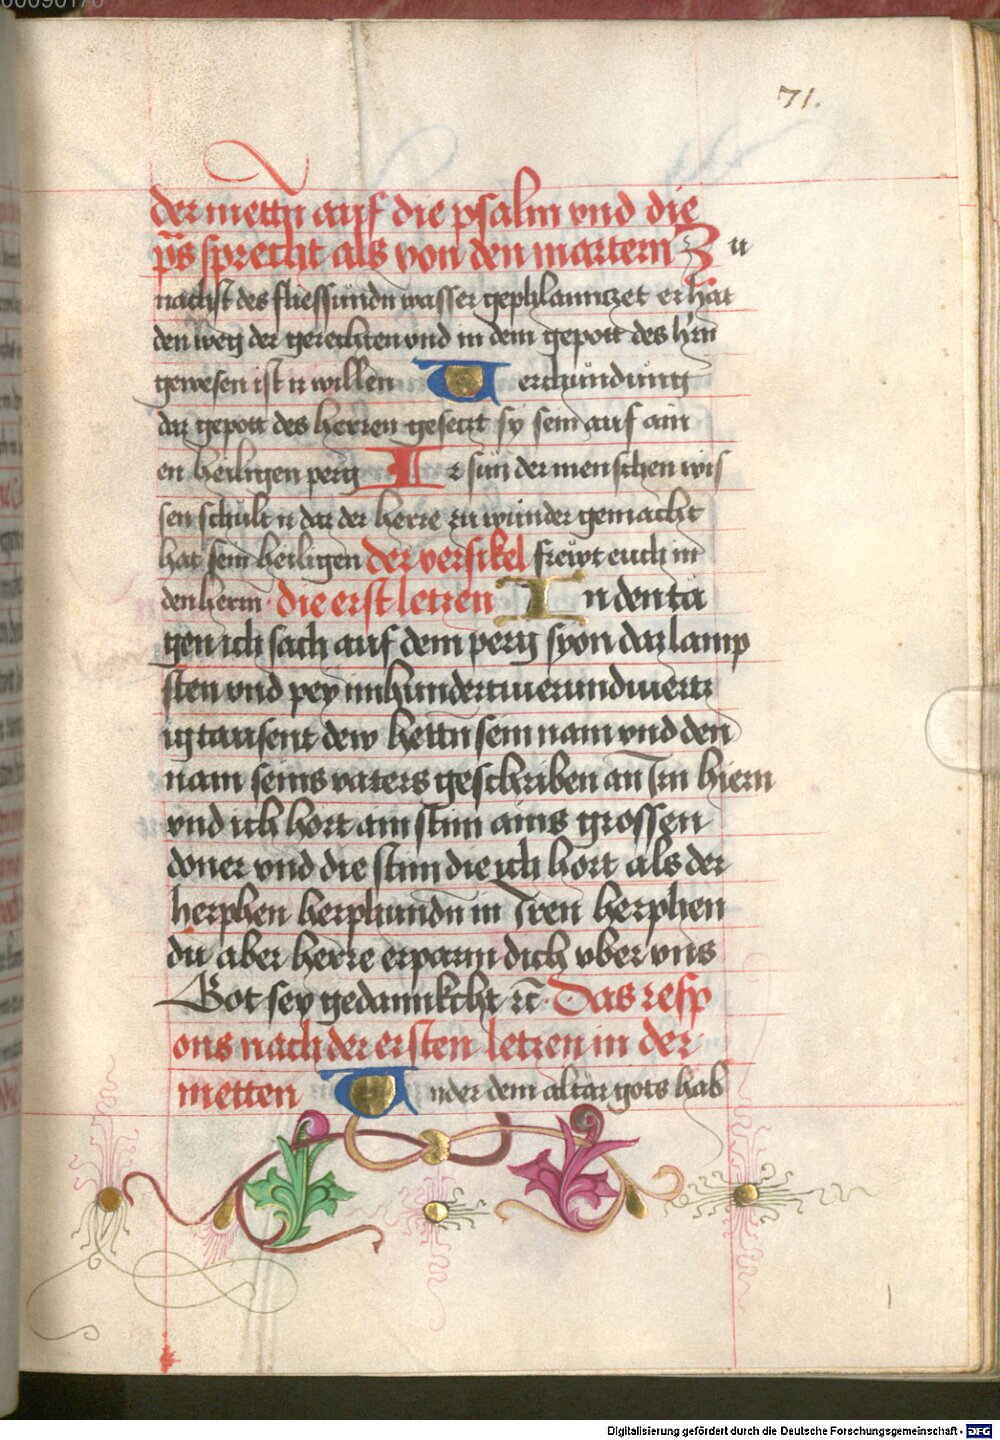 71.
der mettn auf die psalm vnd die
ps sprecht als von den martern Zu
nachst des fliessundn wasser gephlannczet er hat
den weg der gerechten vnd in dem gepott des hrn
gewesen ist n willen Verchundung
daz gepott des herren gesetzt sy sein auf ain
en heiligen perg Ir sün der menschen wis
sen schült n daz der herre zu wunder gemacht
hat sein heiligen der versikel freẅt euch in
den herrn die erst letzen In den tä
gen ich sach auf dem perg syon daz lamp
sten vnd pey im hundert vier und viertz
ig tausent dew hettn sein nam vnd den
nam seins vaters geschriben an Irn hiern
vnd ich hort ain stim ains grossen
doner vnd die stim die ich hort als der
herphen herphundn in Iren herphen
du aber herre erparm dich vber vns
Got sey gedannkcht rc Das resp
ons nach der ersten letzen in der
metten Vnder dem altar gots hab
Digitalisierung gefördert durch die Deutsche Forschungsgemeinschaft - DFG